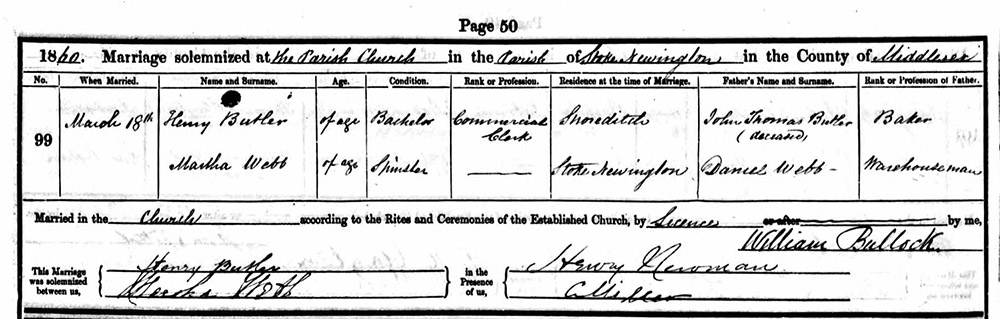 Page 50
1860. Marriage solemnized at the Parish Church in the Parish of Stoke Newington in the County of Middlesex
No. When Married. Name and Surname. Age. Condition. Rank or Profession. Residence at the time of Marriage. Father's Name and Surname. Rank or Profession of Father.
99 March 18th Henry Butler of age Bachelor Commercial Clerk Shoreditch John Thomas Butler (deceased) Baker
Martha Webb of age Spinster Stoke Newington Daniel Webb Warehouseman
Married in the Church according to the Rites and Ceremonies of the Established Church, by Licence or after by me,
William Bullock.
This Marriage was solemnized between us, Henry Butler Martha Webb in the Presence of us, Henry Newman